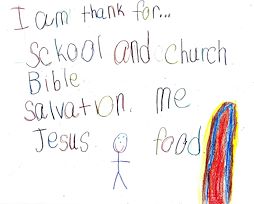 I am thank for...
School and church
Bible
Salvation. me
Jesus food